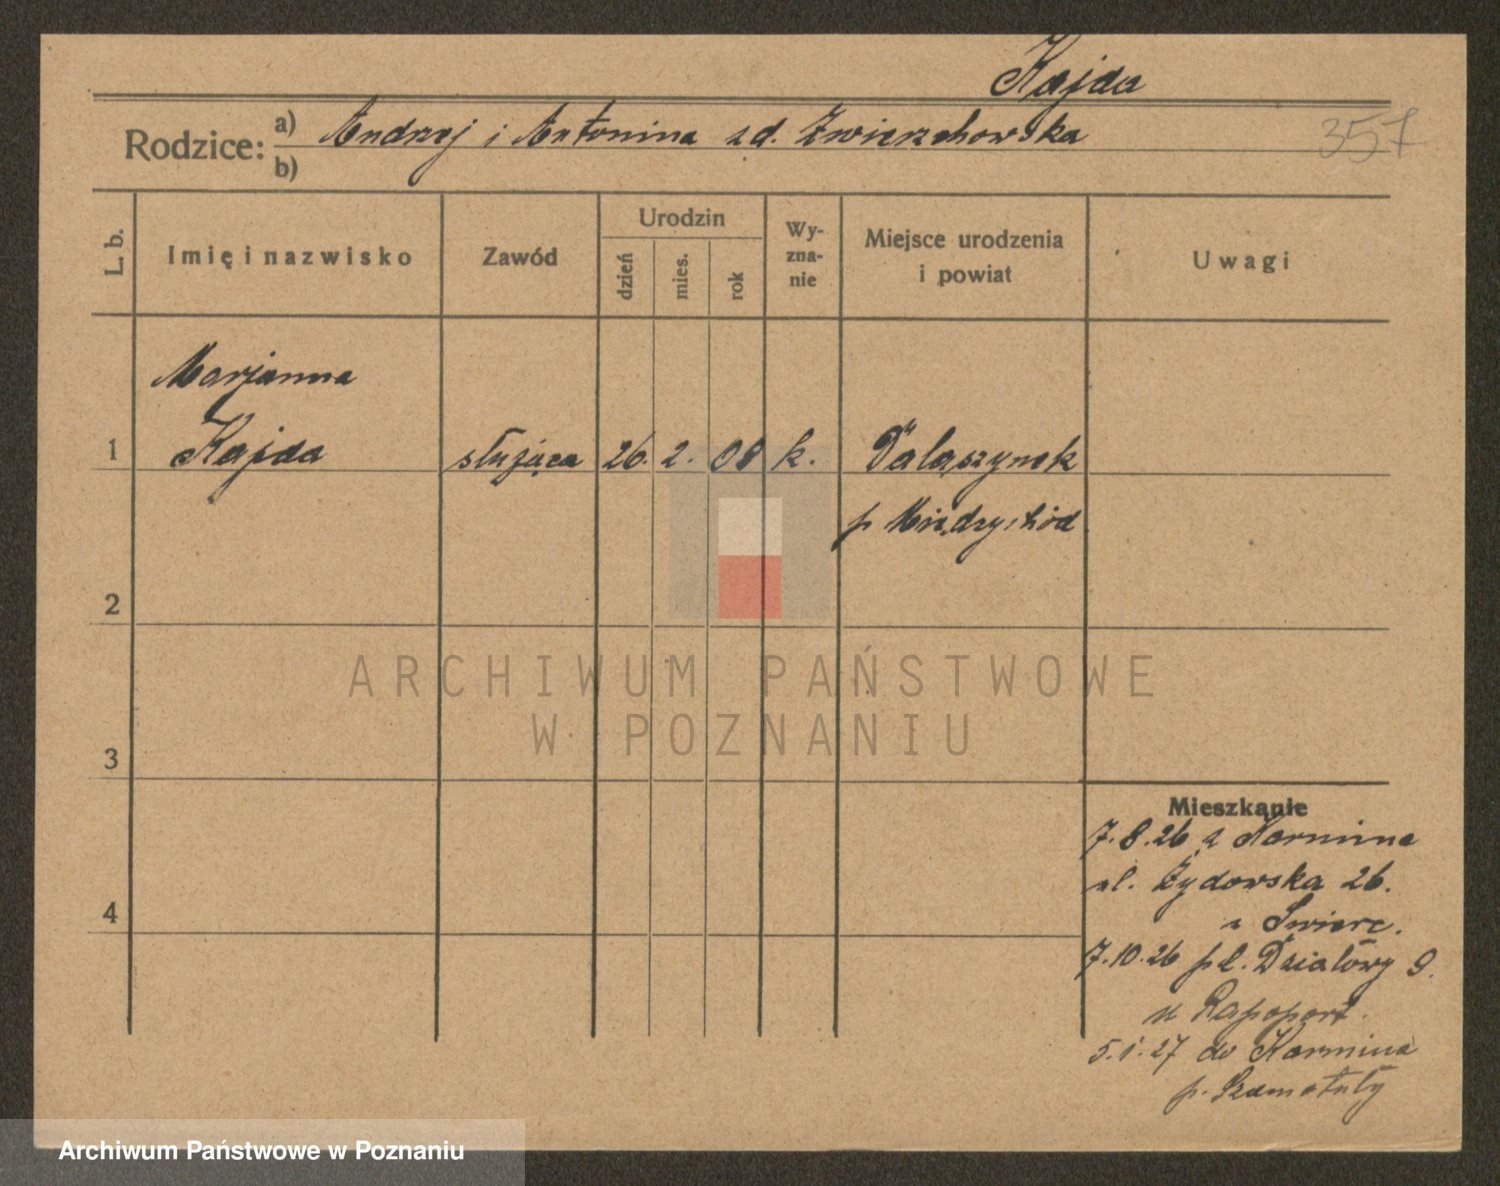 Kajda
Rodzice: a) Andrzej i Antonina zd. Zwierzchowska
b)
357
L. b.
Imię i nazwisko
Zawód
Urodzin
dzień
mies.
rok
Wy-
zna-
nie
Miejsce urodzenia
i powiat
Uwagi
Marjanna
1 Kajda służąca 26. 2. 08 k. Dalaszynek
p Międzychód
2
3
4
ARCHIWUM PAŃSTWOWE
W POZNANIU
Mieszkanie
7.8.26 z Karmina
ul. Żydowska 26.
u Swierc.
7.10.26 pl. Działowy 9.
u Rapoport.
5.1.27 do Karmina
p. Szamotuły
Archiwum Państwowe w Poznaniu